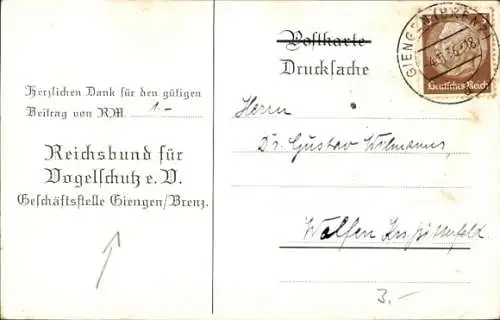 Herzlichen Dank für den gütigen
Beitrag von RM. 1.-
Reichsbund für
Vogelschutz e. V.
Geschäftsstelle Giengen/Brenz.
Postkarte
Drucksache
GIENGEN (BRENZ)
Deutsches Reich
Herrn
Dr. Gustav Wilmanns,
Wolfen Krs. Bitterfeld.
3.-